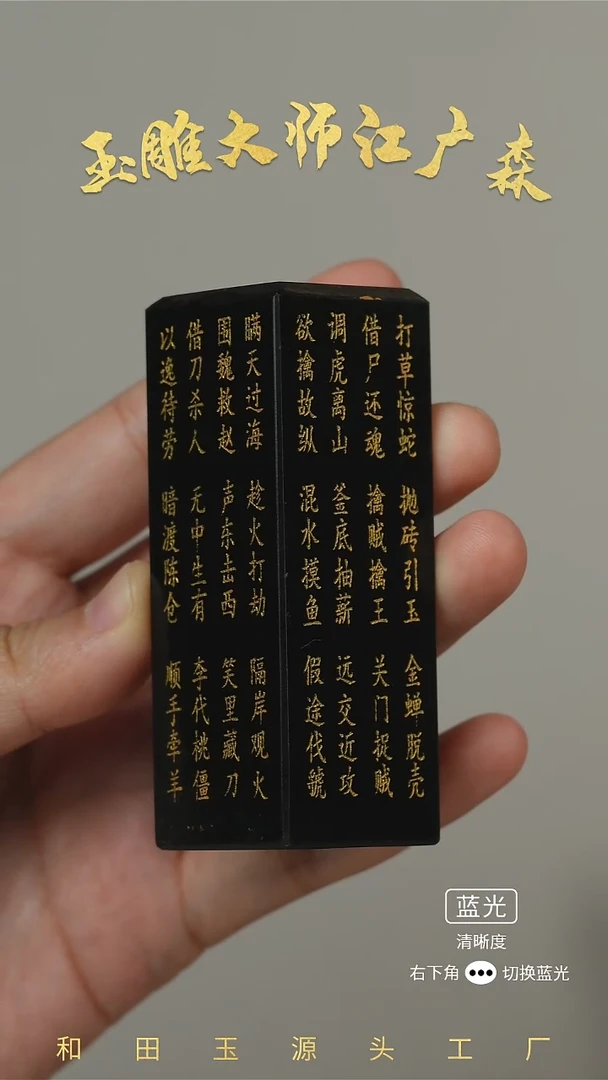 玉雕大师江广森
瞒天过海
围魏救赵
借刀杀人
以逸待劳
趁火打劫
声东击西
无中生有
暗渡陈仓
隔岸观火
笑里藏刀
李代桃僵
顺手牵羊
打草惊蛇
借尸还魂
调虎离山
欲擒故纵
抛砖引玉
擒贼擒王
釜底抽薪
混水摸鱼
金蝉脱壳
关门捉贼
远交近攻
假途伐虢
蓝光
清晰度
右下角 ••• 切换蓝光
和田玉源头工厂